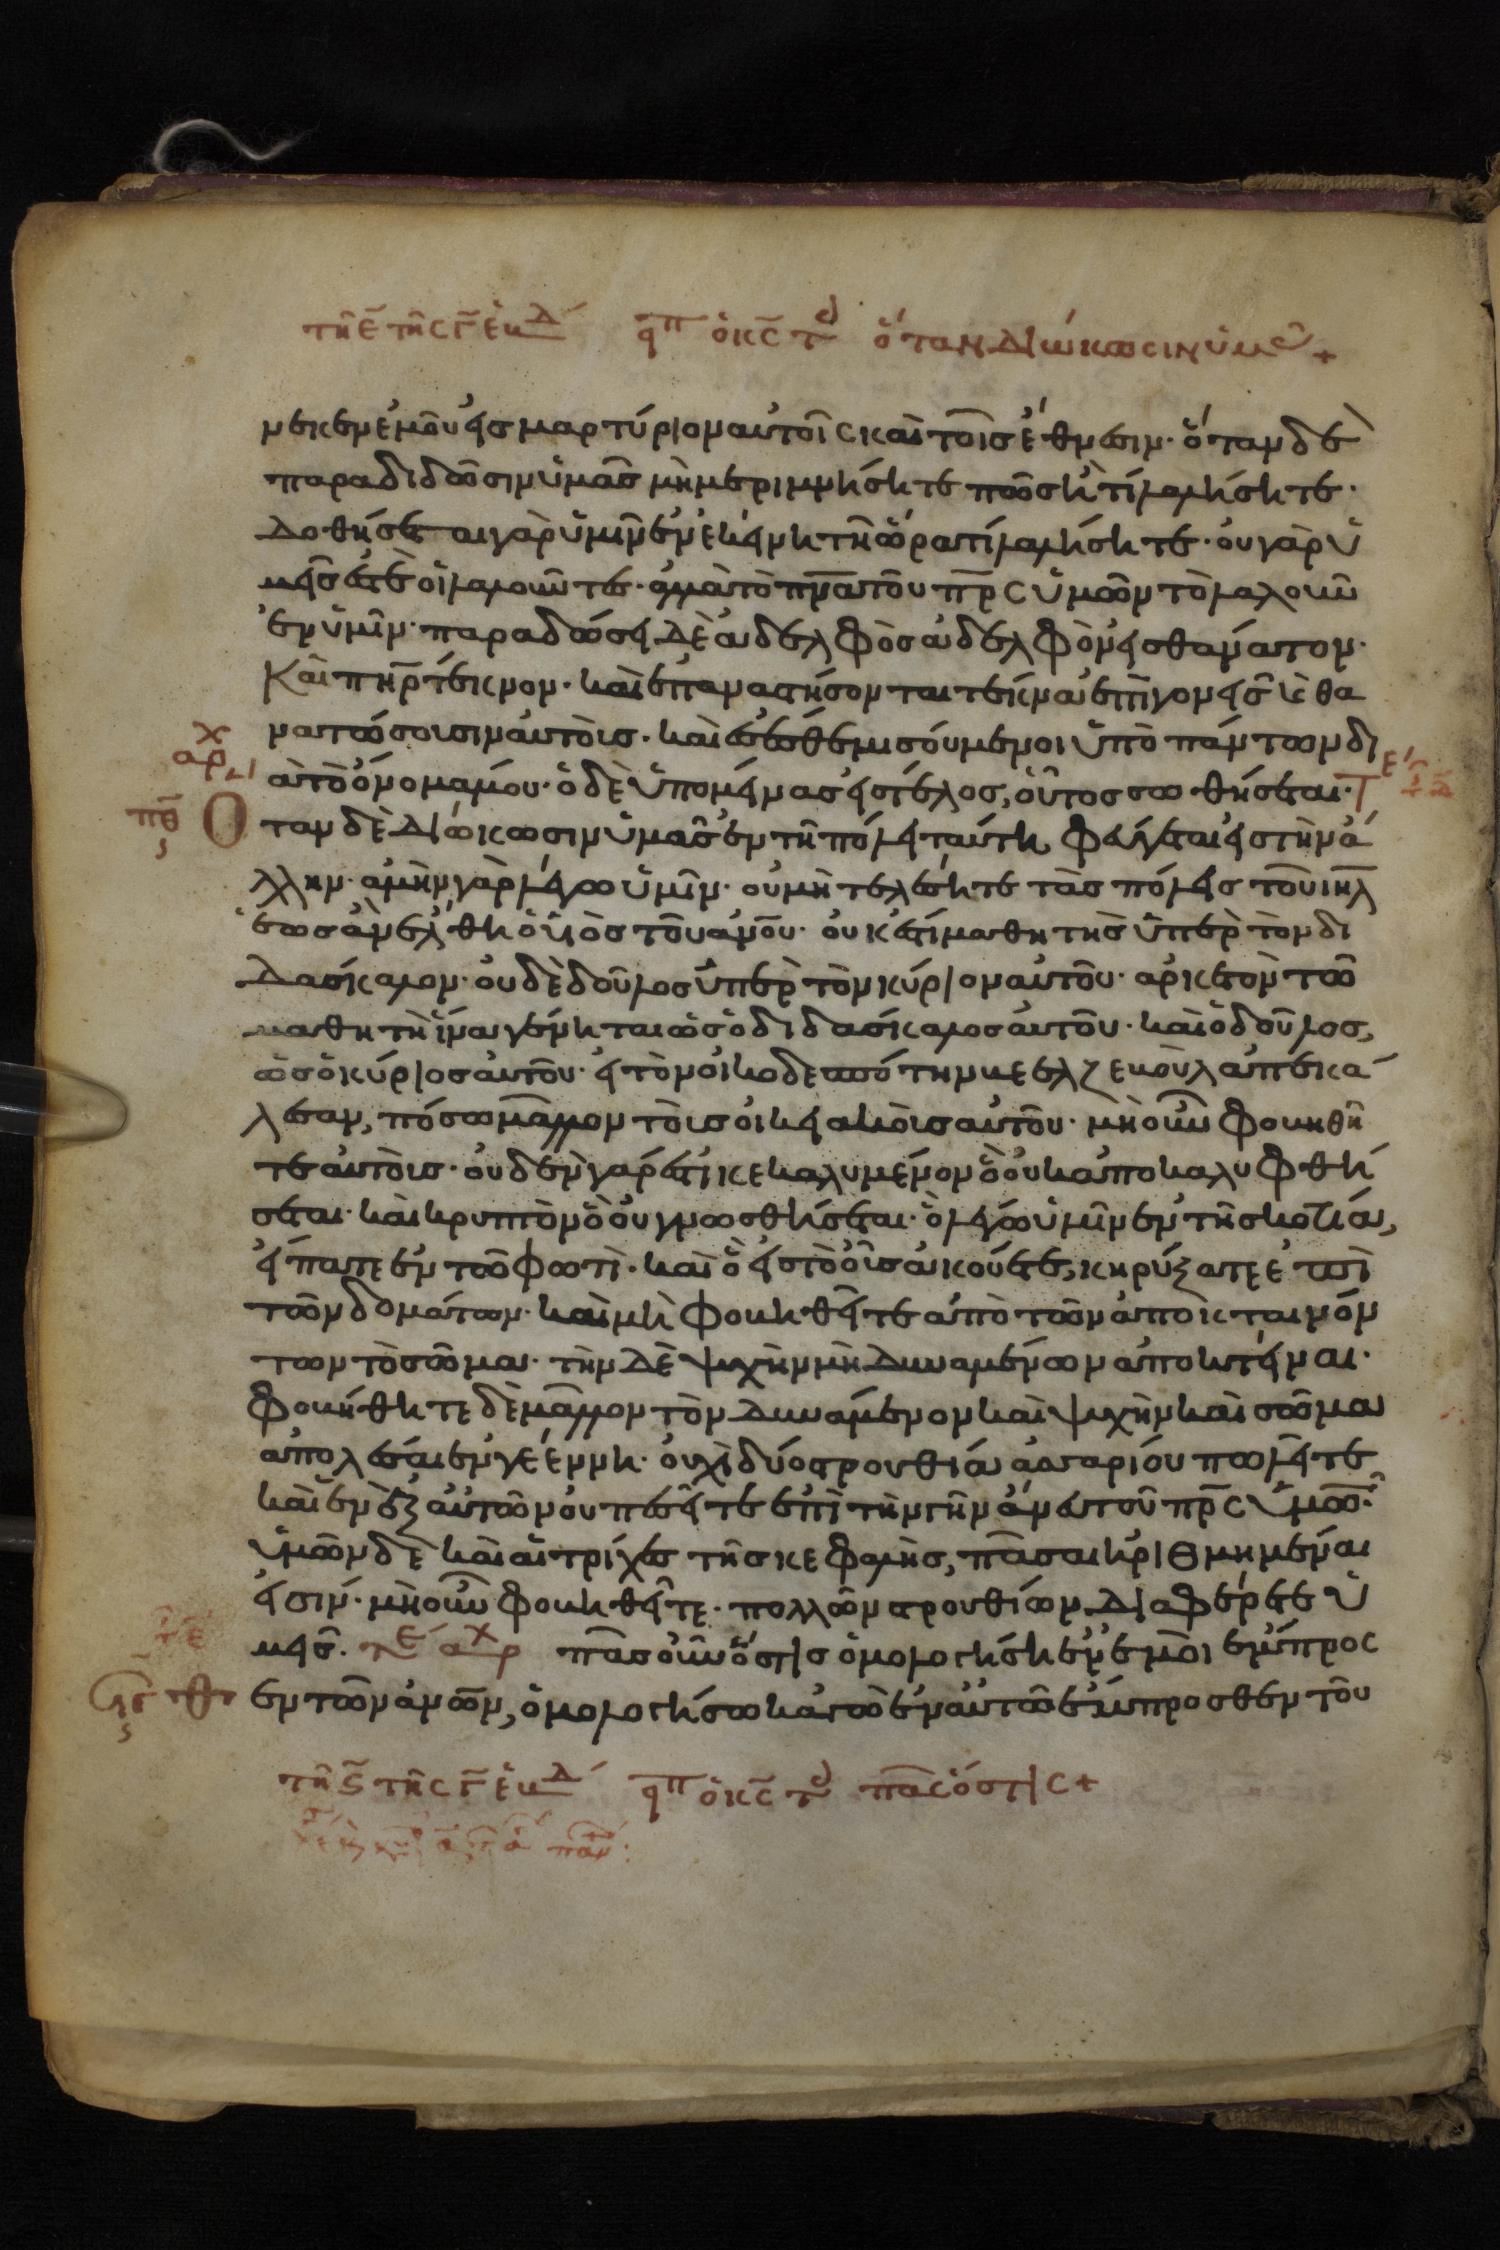 τῆ ε̄ τῆς γ̄ ἑβδ εἶπ ὁ κς̄ τ ὅταν διώκωσιν ὑμ +
νεκεν ἐμοῦ εἰς μαρτύριον αὐτοῖς καὶ τοῖς ἔθνεσιν· ὅταν δὲ
παραδιδῶσιν ὑμᾶς μὴ μεριμνήσητε πῶς ἢ τί λαλήσητε·
δοθήσεται γὰρ ὑμῖν ἐν ἐκείνη τῆ ὥρα τί λαλήσητε· οὐ γὰρ ὑ
μεῖς ἐστὲ οἱ λαλοῦντες· ἀλλὰ τὸ πνᾱ τοῦ πρ̄ς ὑμῶν τὸ λαλοῦν
ἐν ὑμῖν· παραδώσει δὲ ἀδελφὸς ἀδελφὸν εἰς θάνατον·
καὶ πηρ̄ τέκνον· καὶ ἐπαναστήσονται τέκνα ἐπὶ γονεῖς κὲ θα
νατώσουσιν αὐτοῖς· καὶ ἔσεσθε μισούμενοι ὑπὸ πάντων δι
ὰ τὸ ὄνομά μου· ὁ δὲ ὑπομείνας εἰς τέλος, οὗτος σωθήσεται·
Ὅταν δὲ διώκωσιν ὑμᾶς ἐν τῆ πόλει ταύτη φεύγεται εἰς τὴν ἄ
λλην· ἀμὴν γὰρ λέγω ὑμῖν· οὐ μὴ τελέσητε τὰς πόλεις τοῦ ιηλ̄
ἕως ἂν ἔλθη ὁ υἱὸς τοῦ ανοῦ· οὐκ ἔστι μαθητὴς ὑπὲρ τὸν δι
δάσκαλον· οὐδὲ δοῦλος ὑπὲρ τὸν κύριον αὐτοῦ· ἀρκετὸν τῶ
μαθητῆ ἵνα γένηται ὡς ὁ διδάσκαλος αὐτοῦ· καὶ ὁ δοῦλος,
ὡς ὁ κύριος αὐτοῦ· εἰ τὸν οἰκοδεσπότην βεελζεβοὺλ ἀπεκά
λεσαν, πόσω μᾶλλον τοὶς οἰκειακοὶς αὐτοῦ· μὴ οὖν φοβηθῆ
τε αὐτοὶς· οὐδὲν γάρ ἐστι κεκαλυμένον ὃ οὐκ ἀποκαλυφθή
σεται· καὶ κρυπτὸν ὃ οὐ γνωσθήσεται· ὃ λέγω ὑμῖν ἐν τῆ σκοτία,
εἴπατε ἐν τῶ φωτὶ· καὶ ὃ εἰς τὸ οὖς ἀκούετε, κηρύξατε ἐπὶ
τῶν δομάτων· καὶ μὴ φοβηθεῖτε ἀπὸ τῶν ἀποκταινόν
των τὸ σῶμα· τὴν δὲ ψυχὴν μὴ δυναμένων ἀποκτεῖναι·
φοβήθητε δὲ μᾶλλον τὸν δυνάμενον καὶ ψυχὴν καὶ σῶμα
ἀπολέσαι ἐν γεέννη· οὐχὶ δύο στρουθία ἀσσαρίου πωλεῖτε
καὶ ἓν ἐξ αὐτῶν οὐ πεσεῖτε ἐπὶ τὴν γῆν ἄνευ τοῦ πρ̄ς ὑμῶν·
ὑμῶν δὲ καὶ αἱ τρίχες τῆς κεφαλῆς, πᾶσαι ἠριθμημέναι
εἰσίν· μὴ οὖν φοβηθεῖτε· πολλῶν στρουθίων διαφέρετε ὑ
μεῖς. τε αρχ πᾶς οὖν ὅστις ὁμολογήση ἐν ἐμοὶ ἔμπροσθ
εν τῶν ανων, ὁμολογήσω κἀγὼ ἐν αὐτῶ ἔμπροσθεν τοῦ
τῆ ς̄ τῆς γ̄ ἑβδ εἶπ ὁ κς̄ τ πᾶς ὅστις +